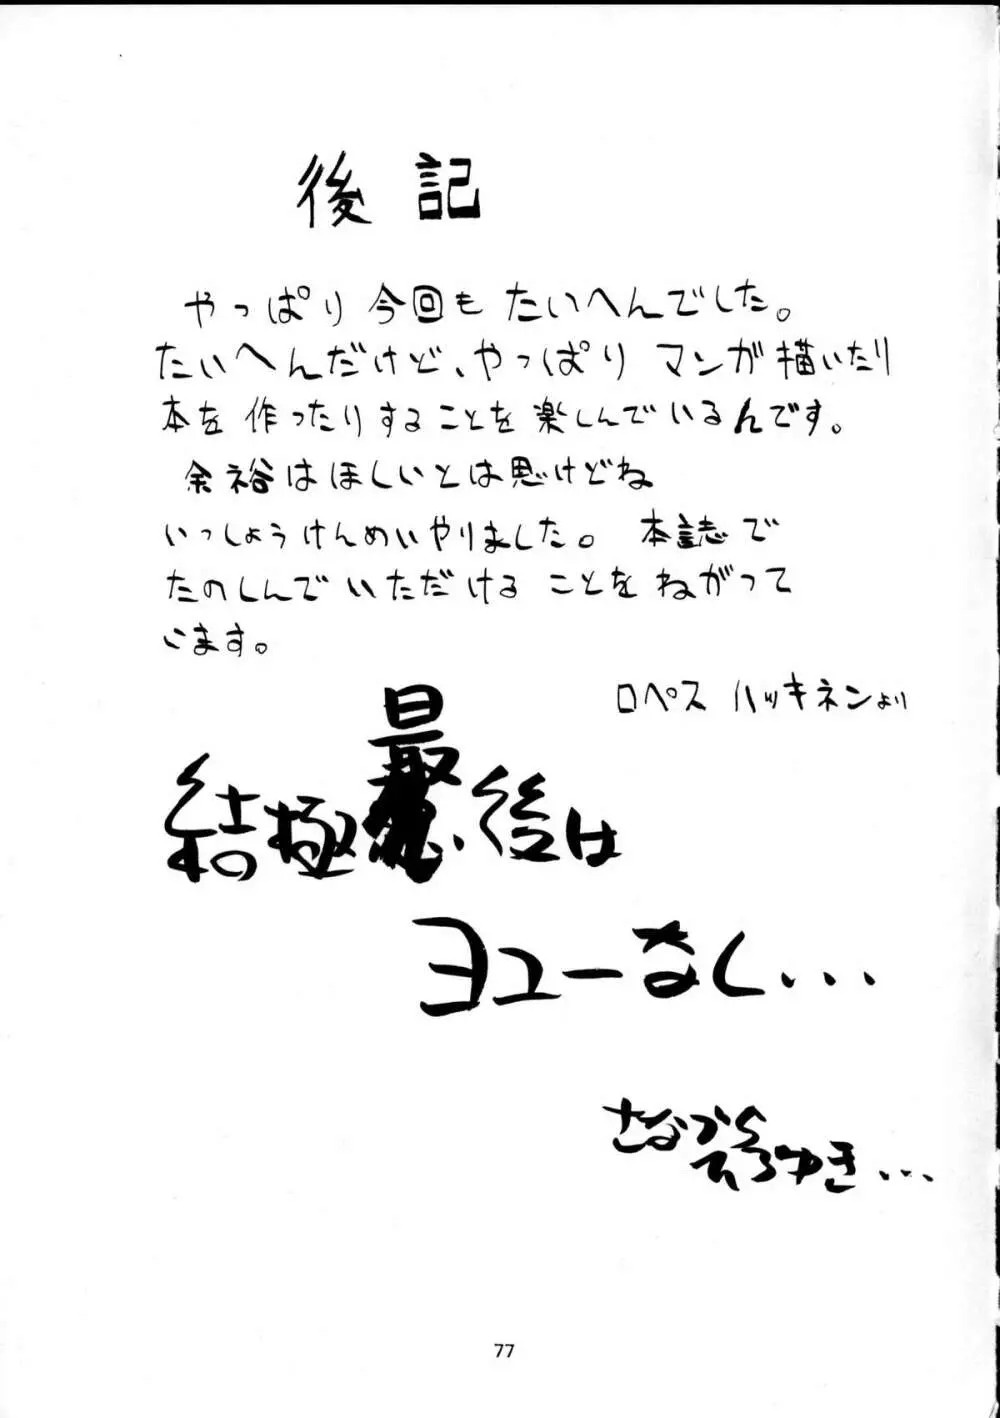 後記
やっぱり今回もたいへんでした。
たいへんだけど、やっぱりマンガ描いたり
本を作ったりすることを楽しんでいるんです。
余裕はほしいとは思けどね
いっしょうけんめいやりました。本誌で
たのしんでいただけることをねがって
います。
ロペス ハッキネンより
結極最後は
ヨユーなく...
さなづら
ひろゆき...
77